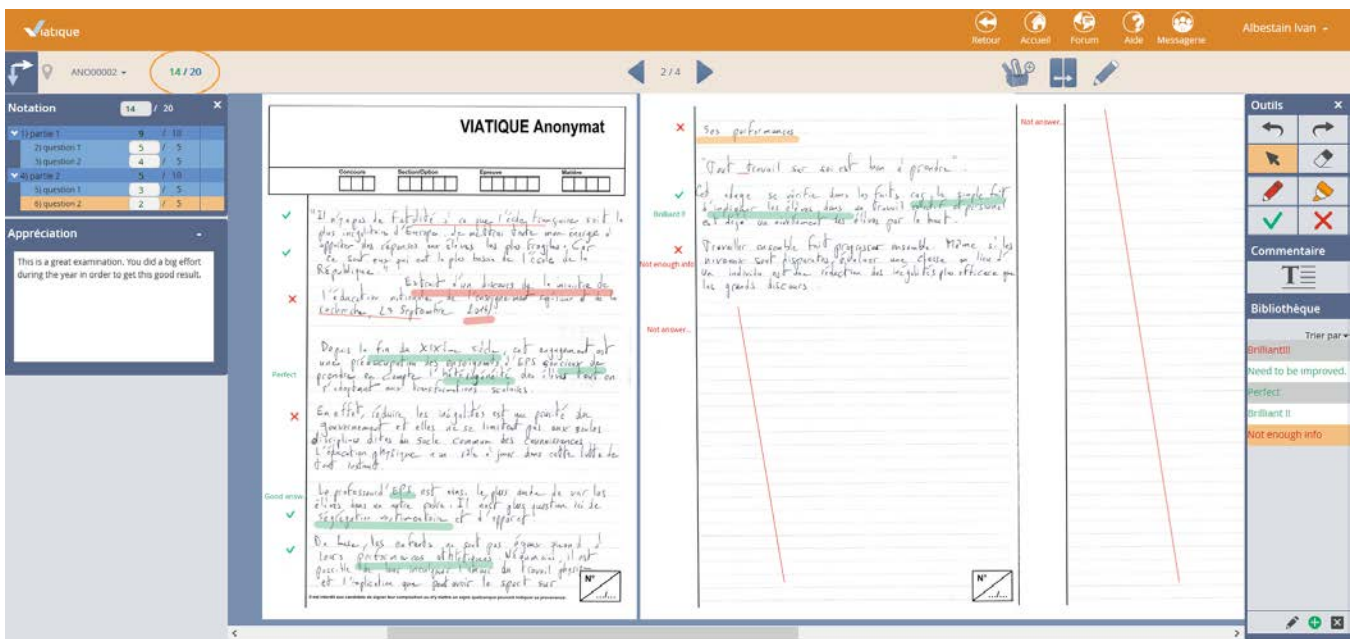 Viatique
Retour Accueil Forum Aide Messagerie
Albestain Ivan
ANO00002
14 / 20
2 / 4
Notation 14 / 20 X
1) partie 1 9 / 10
2) question 1 5 / 5
3) question 2 4 / 5
4) partie 2 5 / 10
5) question 1 3 / 5
6) question 2 2 / 5
Appréciation -
This is a great examination. You did a big effort
during the year in order to get this good result.
VIATIQUE Anonymat
Concours Section/Option Epreuve Matière
"Il n'y a pas de fatalité à ce que l'école française soit la
plus inégalitaire d'Europe. Je mettrai toute mon énergie à
apporter des réponses aux élèves les plus fragiles. Car
ce sont eux qui ont le plus besoin de l'école de la
République."
Extrait d'un discours de la ministre de
l'éducation nationale de l'enseignement supérieur et de la
recherche, 23 Septembre 2014.
Depuis la fin du XIXème siècle, cet engagement est
une préoccupation des enseignants d'EPS soucieux de
Perfect
prendre en compte l'hétérogénéité des élèves tout en
s'adaptant aux transformations scolaires.
En effet, réduire les inégalités est une priorité du
gouvernement et elles ne se limitent pas aux seules
disciplines dites du Socle Commun des Connaissances
L'éducation physique a un rôle à jouer dans cette lutte de
tout instant.
Good answ...
Le professeur d'EPS est ainsi le plus à même de voir les
élèves dans
Il n'est plus question ici de
ségrégation vestimentaire et d'apparat.
De base, les enfants ne sont pas égaux quand à
leurs performances athlétiques. Néanmoins, il est
possible de leur enseigner l'amour du travail physique
et l'implication que peut avoir le sport sur
Il est interdit aux candidats de signer leur composition ou d'y mettre un signe quelconque pouvant indiquer sa provenance.
N°
.../...
Ses performances
"Tout travail sur soi est bon à prendre"
Cet adage se vérifie dans les faits car le simple fait
Brilliant !!
d'impliquer les élèves dans un travail collectif et personnel
est déjà un nivellement des élèves par le haut.
Travailler ensemble fait progresser ensemble. Même si les
Not enough info
niveaux sont disparates, évaluer une classe au lieu d'
un individu est une réduction des inégalités plus efficace que
les grands discours.
Not answer...
N°
.../...
Not answer...
Outils X
Commentaire
T
Bibliothèque
Trier par
Brilliant!!!
Need to be improved.
Perfect
Brilliant !!
Not enough info